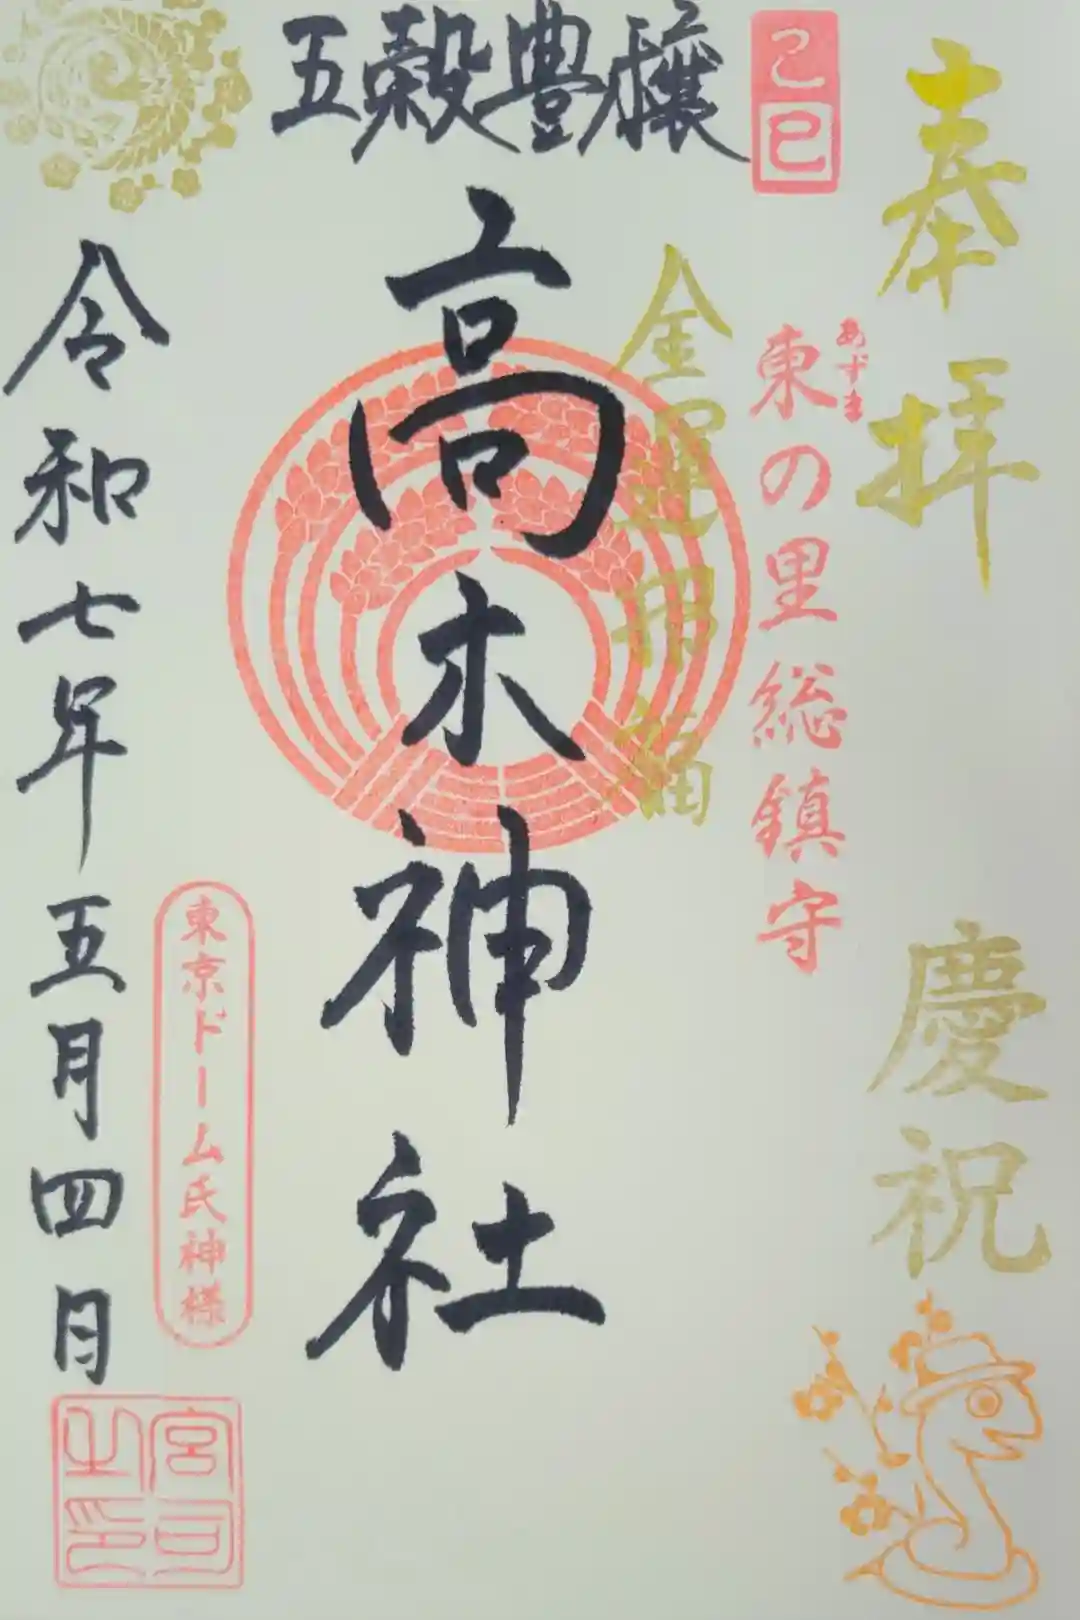 奉拝
慶祝
己巳
あずま
東の里総鎮守
金運開福
五穀豊穣
高木神社
東京ドーム氏神様
令和七年五月四日
宮司之印